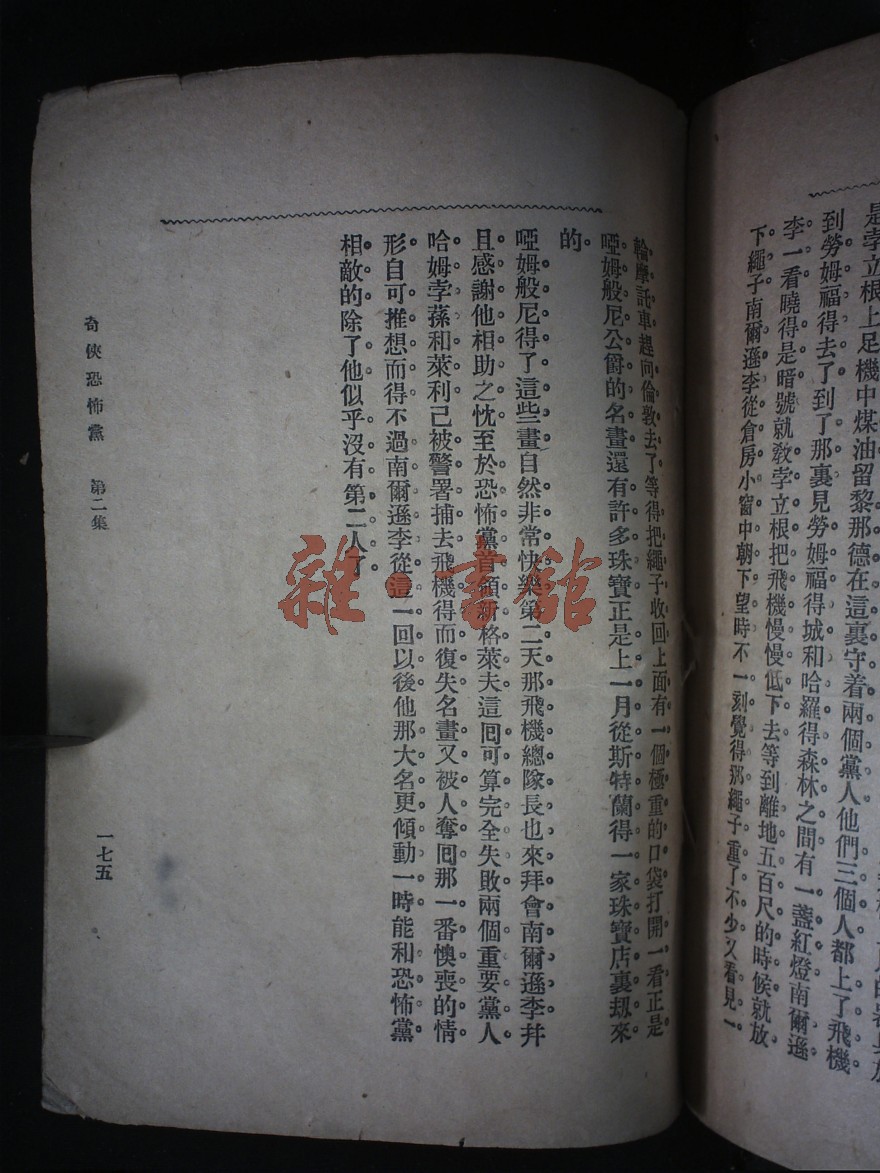 是孛立根上足機中煤油留黎那德在這裏守着兩個黨人他們三個人都上了飛機
到勞姆福得去了到了那裏見勞姆福得城和哈羅得森林之間有一盞紅燈南爾遜
李一看曉得是暗號就敎孛立根把飛機慢慢低下去等到離地五百尺的時候就放
下繩子南爾遜李從倉房小窗中朝下望時不一刻覺得那繩子重了不少又看見一
輪摩託車趕向倫敦去了等得把繩子收回上面有一個極重的口袋打開一看正是
啞姆般尼公爵的名畫還有許多珠寶正是上一月從斯特蘭得一家珠寶店裏刼來
的。
啞姆般尼得了這些畫自然非常快樂第二天那飛機總隊長也來拜會南爾遜李幷
且感謝他相助之忱至於恐怖黨首領新格萊夫這囘可算完全失敗兩個重要黨人
哈姆孛蓀和萊利已被警署捕去飛機得而復失名畫又被人奪囘那一番懊喪的情
形自可推想而得不過南爾遜李從這一回以後他那大名更傾動一時能和恐怖黨
相敵的除了他似乎沒有第二人了。
奇俠恐怖黨 第二集
一七五
雜·書館